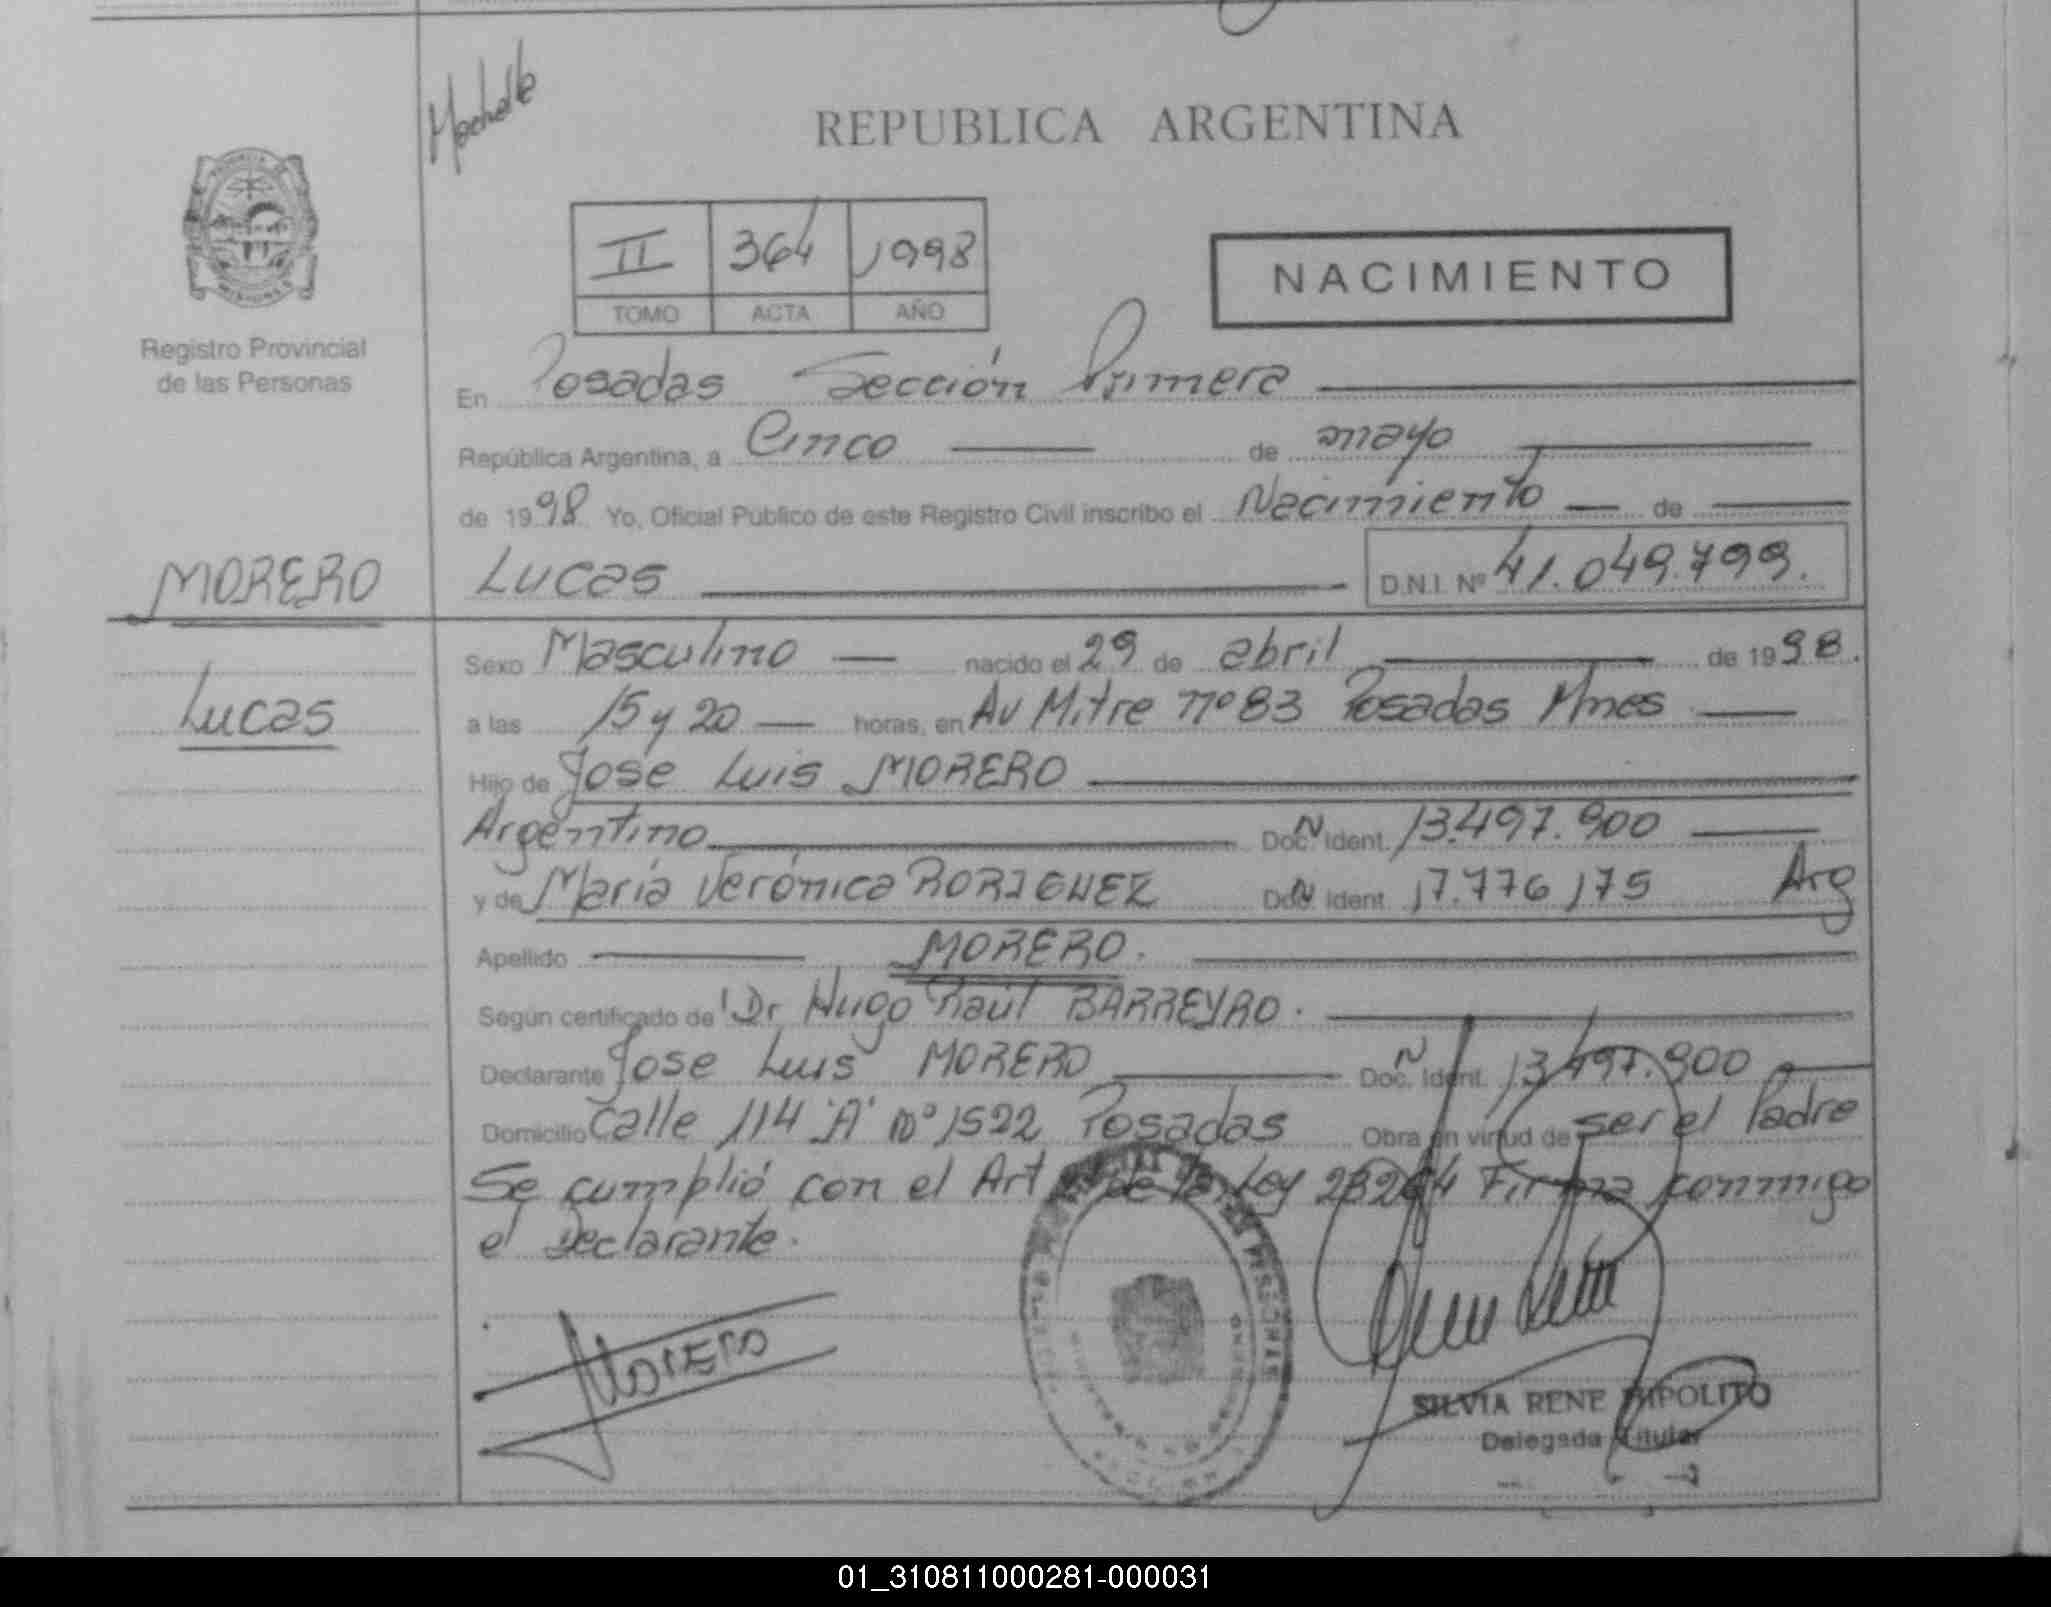 REPUBLICA ARGENTINA
II 364 1998
TOMO ACTA AÑO
NACIMIENTO
MISIONES
Registro Provincial
de las Personas
En Posadas Sección Primera
República Argentina, a Cinco de mayo
de 1998 Yo, Oficial Público de este Registro Civil inscribo el Nacimiento de
MORERO
Lucas D.N.I. Nº 41.049.799.
Lucas
Sexo Masculino nacido el 29 de abril de 1998.
a las 15 y 20 horas, en Av Mitre nº 83 Posadas Mnes
Hijo de Jose Luis MORERO
Argentino Doc. N Ident. 13.497.900
y de María Verónica RORIGUEZ Doc. N Ident. 17.776.175 Arg
Apellido MORERO.
Según certificado de Dr Hugo Raúl BARREYRO.
Declarante Jose Luis MORERO Doc. N Ident. 13.497.900
Domicilio Calle 114 "A" Nº 1522 Posadas Obra en virtud de ser el Padre
Se cumplió con el Art de la Ley 23264 Firma conmigo
el Declarante.
MORERO
SILVIA RENE HIPOLITO
Delegada Titular
01_310811000281-000031